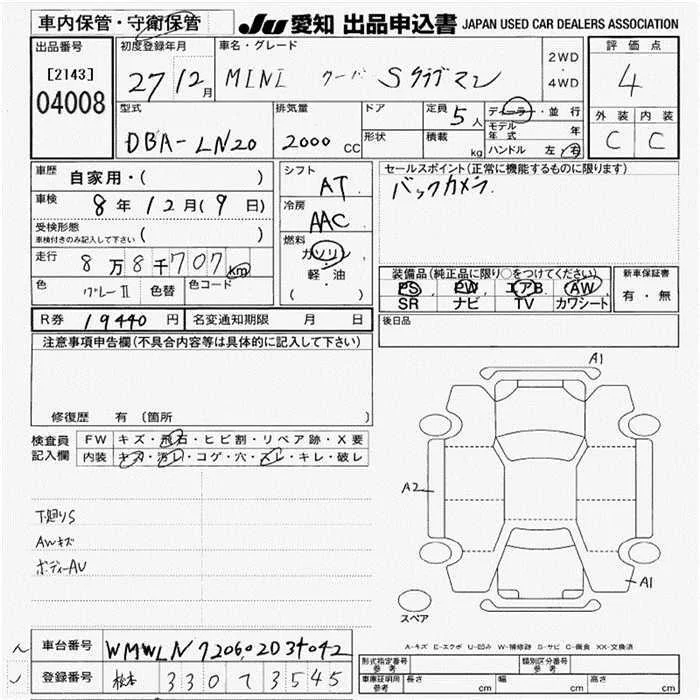 車内保管・守衛保管
JU 愛知 出品申込書 JAPAN USED CAR DEALERS ASSOCIATION
出品番号
[2143]
04008
初度登録年月
27 12月
車名・グレード
MINI クーパ Sクラブマン
2WD
・
4WD
評価点
4
外装 内装
C C
型式
DBA-LN20
排気量
2000 CC
ドア
形状
定員 5人
積載 kg
ディーラー・並行
モデル年式 年
ハンドル 左・右
車歴
自家用・( )
車検
8年12月(9日)
受検形態
車検付きのみ記入して下さい ( )
走行
8万8千707km
色
グレーII
色替
色コード
シフト
AT
冷房
AAC
燃料
ガソリン
・
軽・油
( )
セールスポイント(正常に機能するものに限ります)
バックカメラ
装備品(純正品に限り○をつけてください)
PS PW エアB AW
SR ナビ TV カワシート
新車保証書
有・無
R券 19440円
名変通知期限 月 日
後日品
注意事項申告欄(不具合内容等は具体的に記入して下さい)
修復歴 有 〔箇所 〕
検査員
記入欄
FW キズ・飛石・ヒビ割・リペア跡・X要
内装 キズ・汚レ・コゲ・穴・スレ・キレ・破レ
下廻りS
AWキズ
ボディーAU
A1
A2
A1
スペア
A-キズ E-エクボ U-凹み W-補修跡 S-サビ C-腐食 XX-交換済
車台番号
WMWLN720602D34042
登録番号
松本 330 て 3545
形式指定番号
参考
類別区分番号
参考
車庫証明用
参考
長さ cm
幅 cm
高さ cm